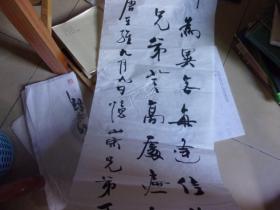 為異客每逢佳
兄弟登高處遍
唐王維九月九日憶山東兄弟